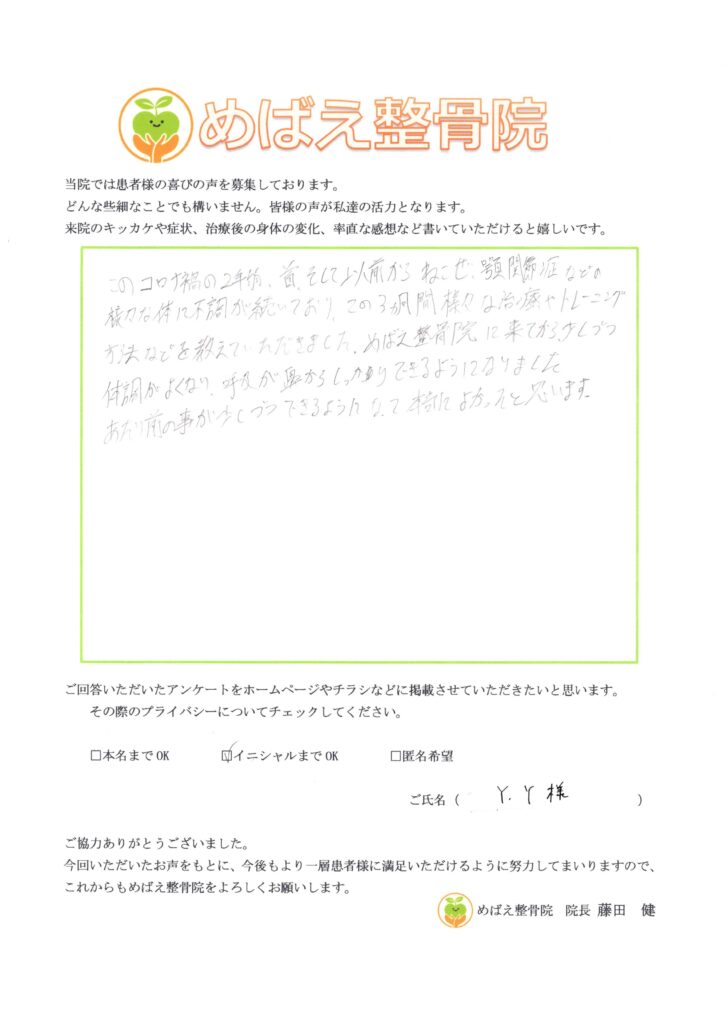 めばえ整骨院
当院では患者様の喜びの声を募集しております。
どんな些細なことでも構いません。皆様の声が私達の活力となります。
来院のキッカケや症状、治療後の身体の変化、率直な感想など書いていただけると嬉しいです。
このコロナ禍の2年半、首、そして以前からねこぜ、顎関節症などの
様々な体に不調が続いており、この3ヵ月間様々な治療やトレーニング
方法などを教えていただきました。めばえ整骨院に来てから少しづつ
体調がよくなり、呼吸が鼻からしっかりできるようになりました
あたり前の事が少しづつできるようになって本当によかったと思います。
ご回答いただいたアンケートをホームページやチラシなどに掲載させていただきたいと思います。
その際のプライバシーについてチェックしてください。
□本名までOK ☑イニシャルまでOK □匿名希望
ご氏名（ Y.Y様 ）
ご協力ありがとうございました。
今回いただいたお声をもとに、今後もより一層患者様に満足いただけるように努力してまいりますので、
これからもめばえ整骨院をよろしくお願いします。
めばえ整骨院 院長 藤田 健